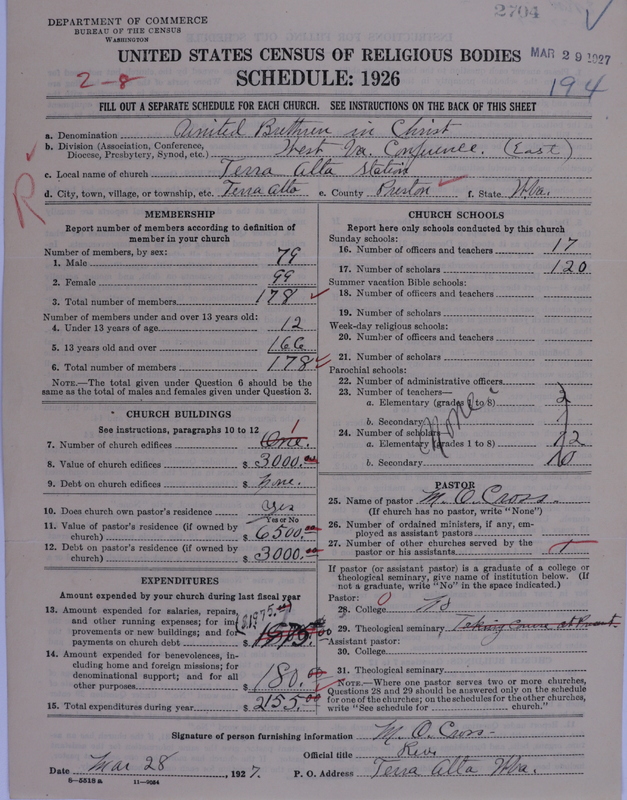 2704
DEPARTMENT OF COMMERCE
BUREAU OF THE CENSUS
WASHINGTON
UNITED STATES CENSUS OF RELIGIOUS BODIES
MAR 29 1927
2-8
SCHEDULE: 1926
194
FILL OUT A SEPARATE SCHEDULE FOR EACH CHURCH. SEE INSTRUCTIONS ON THE BACK OF THIS SHEET
a. Denomination United Brethren in Christ
b. Division (Association, Conference, Diocese, Presbytery, Synod, etc.) West Va. Conference. (East)
c. Local name of church Terra Alta Station
d. City, town, village, or township, etc. Terra Alta e. County Preston f. State W.Va.
R
MEMBERSHIP
Report number of members according to definition of member in your church
Number of members, by sex:
1. Male 79
2. Female 99
3. Total number of members 178
Number of members under and over 13 years old:
4. Under 13 years of age 12
5. 13 years old and over 166
6. Total number of members 178
NOTE.—The total given under Question 6 should be the same as the total of males and females given under Question 3.
CHURCH BUILDINGS
See instructions, paragraphs 10 to 12
7. Number of church edifices One. 1
8. Value of church edifices $ 3000.00
9. Debt on church edifices $ none.
10. Does church own pastor's residence? yes
Yes or No
11. Value of pastor's residence (if owned by church) $ 6500.00
12. Debt on pastor's residence (if owned by church) $ 3000.00
EXPENDITURES
Amount expended by your church during last fiscal year
13. Amount expended for salaries, repairs, and other running expenses; for improvements or new buildings; and for payments on church debt $ 1975.00
($1975.00)
14. Amount expended for benevolences, including home and foreign missions; for denominational support; and for all other purposes $ 180.00
15. Total expenditures during year $ 2155.00
CHURCH SCHOOLS
Report here only schools conducted by this church
Sunday schools:
16. Number of officers and teachers 17
17. Number of scholars 120
Summer vacation Bible schools:
18. Number of officers and teachers
19. Number of scholars
Week-day religious schools:
20. Number of officers and teachers
21. Number of scholars
Parochial schools:
22. Number of administrative officers
23. Number of teachers—
a. Elementary (grades 1 to 8)
b. Secondary
24. Number of scholars—
a. Elementary (grades 1 to 8) 12
b. Secondary 10
None.
PASTOR
25. Name of pastor M. O. Cross.
(If church has no pastor, write "None")
26. Number of ordained ministers, if any, employed as assistant pastors
27. Number of other churches served by the pastor or his assistants
If pastor (or assistant pastor) is a graduate of a college or theological seminary, give name of institution below. (If not a graduate, write "No" in the space indicated.)
Pastor:
28. College
29. Theological seminary Taking Course at Present
Assistant pastor:
30. College
31. Theological seminary
NOTE.—Where one pastor serves two or more churches, Questions 28 and 29 should be answered only on the schedule for one of the churches; on the schedules for the other churches, write "See schedule for church."
Signature of person furnishing information M. O. Cross
Official title Rev.
Date Mar 28, 1927. P. O. Address Terra Alta W.Va.
8—5518 a 11—9054